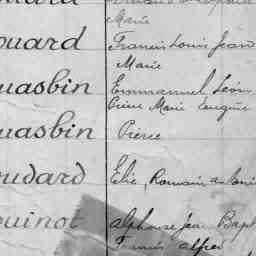 Marie
ouard Francis Louis Jean
Marie
uasbin Emmanuel Léon
Pierre Marie Eugène
uasbin Pierre
oudard Elie, Romain
ouinot Alphonse Jean Bapt
Francis Alfred